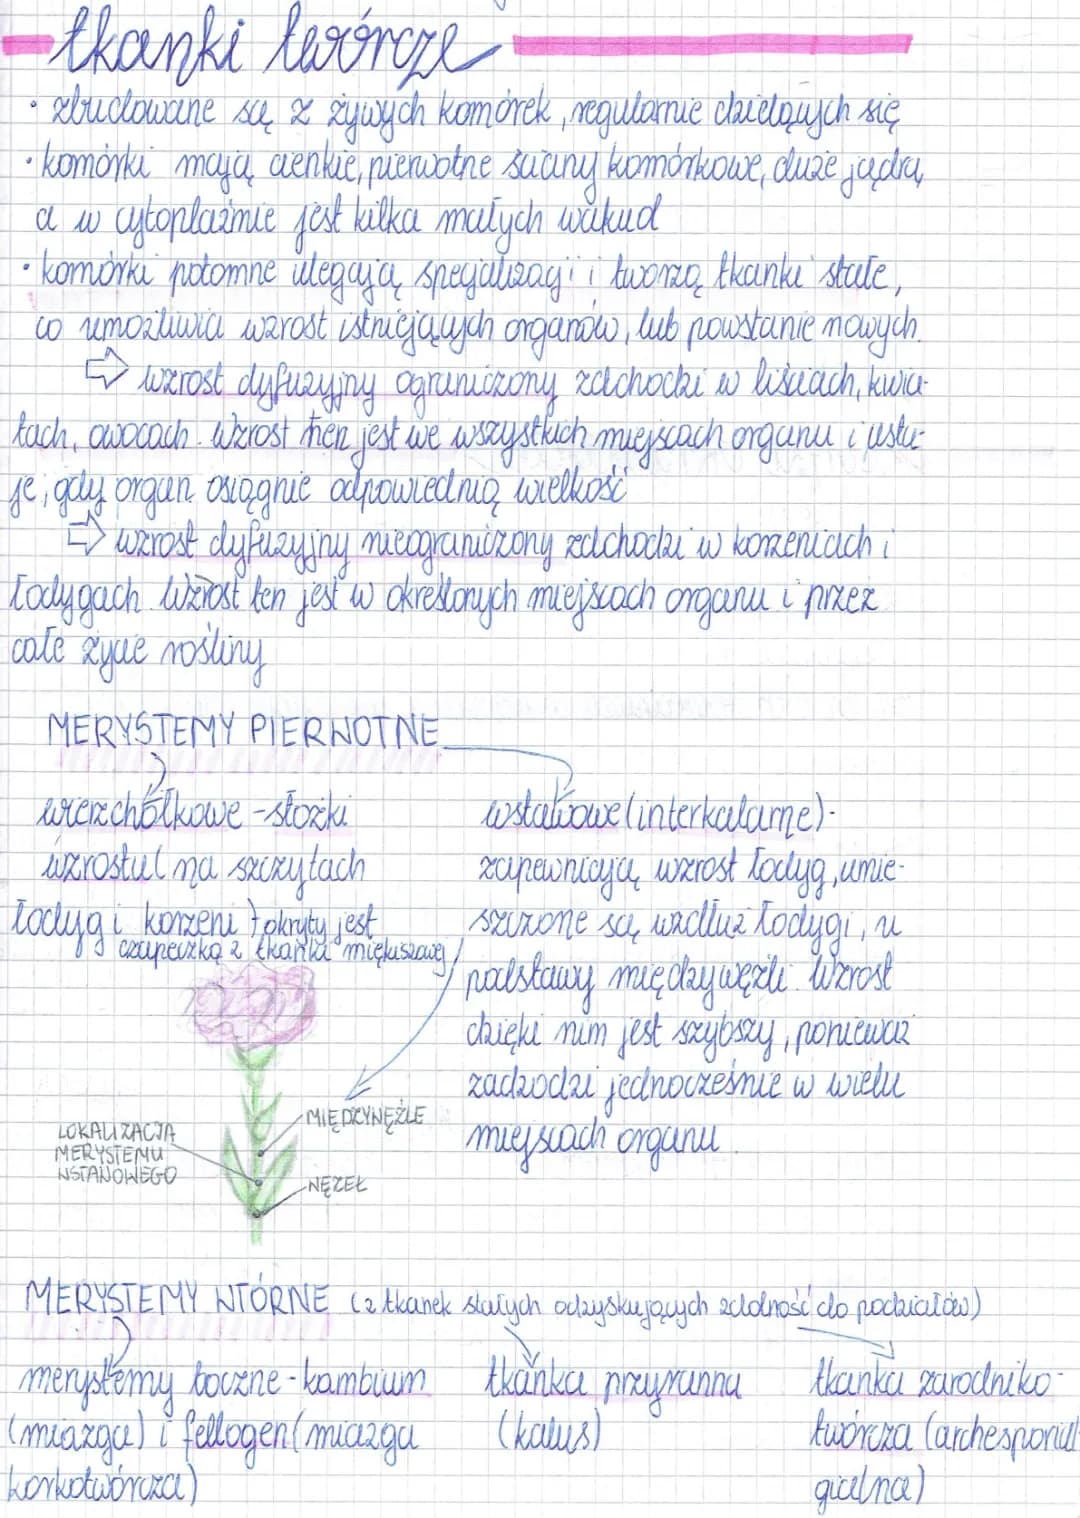 tkanki twórcze
• zbudowane są z żywych komórek, regularnie dzielących się
• komórki mają cienkie, pierwotne ściany komórkowe, duże jądra,
a w cytoplaźmie jest kilka małych wakuol
• komórki potomne ulegają specjalizacji i tworzą tkanki stałe,
co umożliwia wzrost istniejących organów, lub powstanie nowych.
⇨ wzrost dyfuzyjny ograniczony zachodzi w liściach, kwia-
tach, owocach. Wzrost ten jest we wszystkich miejscach organu i usta-
je, gdy organ osiągnie odpowiednią wielkość
⇨ wzrost dyfuzyjny nieograniczony zachodzi w korzeniach i
łodygach. Wzrost ten jest w określonych miejscach organu i przez
całe życie rośliny
MERYSTEMY PIERWOTNE
wierzchołkowe - stożki
wzrostu (na szczytach
łodyg i korzeni) okryty jest
czapeczką z tkanki miękiszowej
wstawowe (interkalarne) -
zapewniają wzrost łodyg, umie-
szczone są wzdłuż łodygi, u
podstawy międzywęźli. Wzrost
dzięki nim jest szybszy, ponieważ
zachodzi jednocześnie w wielu
miejscach organu.
MIĘDZYWĘŹLE
LOKALIZACJA
MERYSTEMU
WSTAWOWEGO
WĘZEŁ
MERYSTEMY WTÓRNE (z tkanek stałych odzyskujących zdolność do podziałów)
merystemy boczne - kambium
(miazga) i fellogen (miazga
korkotwórcza)
tkanka przyranna
(kalus)
tkanka zarodniko-
twórcza (archesporial-
gialna)